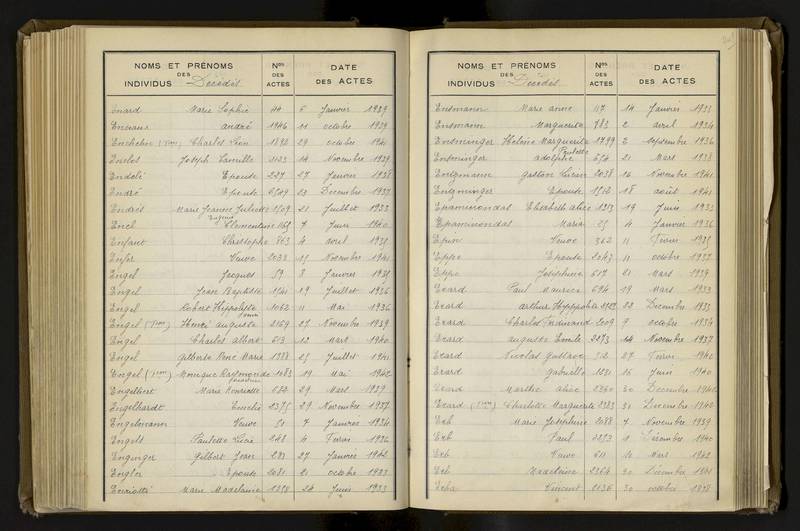 NOMS ET PRÉNOMS DES INDIVIDUS Décédés Nos DES ACTES DATE DES ACTES
Enard Marie Sophie 44 5 Janvier 1939
André 1946 11 octobre 1939
Charles Léon 1892 29 octobre
Enclos Joseph Camille 2133 14 Novembre 1939
Épouse 227 27 Janvier 1938
Endré Épouse 23 Décembre 1937
Endrés Marie Jeanne Juliette 1509 21 Juillet 1933
Eugénie
Encl Clémentine 1165 7 Juin 1940
Enfant Christophe 863 4 avril 1935
Enfer Veuve 2038 15 Novembre 1941
Engel Jacques 59 8 Janvier 1935
Engel Jean Baptiste 1541 19 Juillet 1936
Engel Robert Hippolyte 1062 11 Mai 1936
Engel Henri auguste 2169 27 Novembre 1939
Engel Charles albert 513 12 Mars 1940
Engel Gilberte René Marie 1388 25 Juillet 1941
Engel Monique Raymonde 1083 19 Mai 1942
Engelbert Marie Henriette 622 29 Mars 1939
Engelhardt 2375 29 Novembre 1937
Engelmann Veuve 50 7 Janvier 1934
Engels Paulette Lucie 248 4 Février 1932
Enginger Gilbert Jean 283 27 Janvier 1942
Engler Épouse 2081 21 octobre 1933
Marie Madeleine 1378 24 Juin 1933
NOMS ET PRÉNOMS DES INDIVIDUS Décédés Nos DES ACTES DATE DES ACTES
Ensmann Marie anne 117 14 Janvier 1933
Ensmann Marguerite 783 2 avril 1934
Ensminger Hélène Marguerite 1799 2 Septembre 1936
Paulette
Ensminger adolphe 654 21 Mars 1938
Entzmann gaston Lucien 2038 16 Novembre 1941
Entzminger Épouse 1502 18 août 1941
Epaminondas Elisabeth alice 1313 19 Juin 1933
Epaminondas Maria 25 4 Janvier 1936
Epin Veuve 362 11 Février 1935
Eppe Épouse 2043 11 octobre 1937
Eppe Joséphine 617 21 Mars 1939
Erard Paul Maurice 694 19 Mars 1933
Erard arthur Hyppolite 22 Décembre 1933
Erard Charles Ferdinand 2009 9 octobre 1934
Erard auguste Emile 2273 14 Novembre 1937
Erard Nicolas Gustave 312 27 Février 1940
Erard Gabrielle 1231 15 Juin 1940
Erard Marthe alice 30 Décembre 1940
Erard Charlotte Marguerite 2383 31 Décembre 1940
Erb Marie Joséphine 2088 7 Novembre 1939
Erb Paul 2273 1 Décembre 1940
Erb Veuve 611 10 Mars 1942
Erb Madeleine 2364 30 Décembre 1941
Erba Vincent 2136 30 octobre